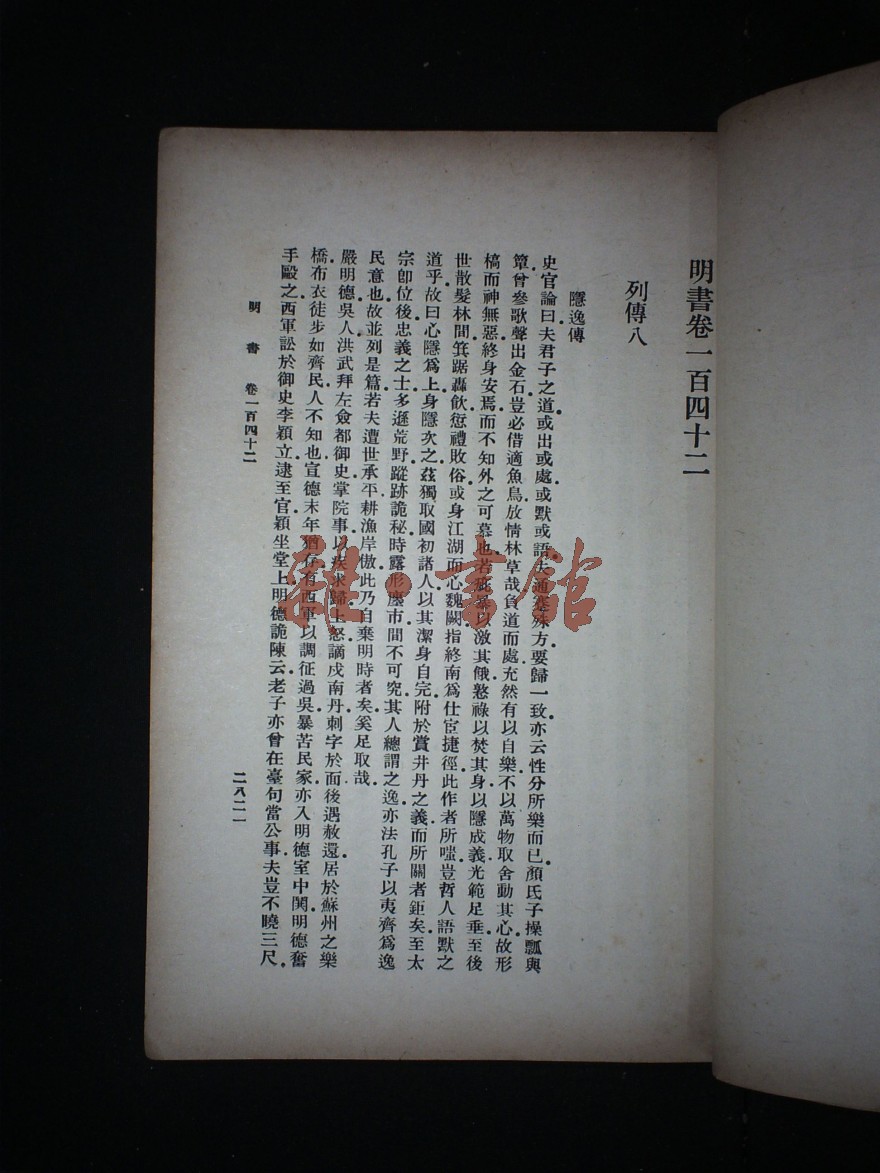 明書卷一百四十二
列傳八
隱逸傳
史官論曰夫君子之道或出或處或默或語夫通塞殊方要歸一致亦云性分所樂而已顏氏子操瓢與
簞曾參歌聲出金石豈必借適魚鳥放情林草哉負道而處充然有以自樂不以萬物取舍動其心故形
槁而神無惡終身安焉而不知外之可慕也若疵暴以激其餓憝祿以焚其身以隱成義光範足垂至後
世散髮林間箕踞轟飲愆禮敗俗或身江湖而心魏闕指終南爲仕宦捷徑此作者所嗤豈哲人語默之
道乎故曰心隱爲上身隱次之茲獨取國初諸人以其潔身自完附於賞井丹之義而所關者鉅矣至太
宗卽位後忠義之士多遯荒野蹤跡詭秘時露形廛市間不可究其人總謂之逸亦法孔子以夷齊爲逸
民意也故並列是篇若夫遭世承平耕漁岸傲此乃自棄明時者矣奚足取哉
嚴明德吳人洪武拜左僉都御史掌院事以疾求歸上怒謫戍南丹刺字於面後遇赦還居於蘇州之樂
橋布衣徒步如齊民人不知也宣德末年猶存有西軍以調征過吳暴苦民家亦入明德室中鬨明德奮
手毆之西軍訟於御史李穎立逮至官穎坐堂上明德詭陳云老子亦曾在臺句當公事夫豈不曉三尺
明書 卷一百四十二
二八二一
雜·書館